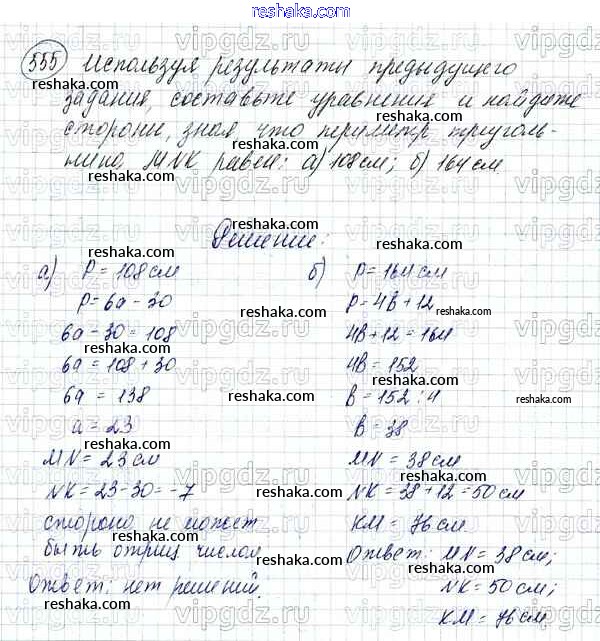 reshaka.com
555 Используя результаты предыдущего
задания, составьте уравнения и найдите
стороны, зная что периметр треуголь-
ника MNK равен: а) 108 см; б) 164 см.
Решение:
а) P = 108 см
P = 6a - 30
6a - 30 = 108
6a = 108 + 30
6a = 138
a = 23
MN = 23 см
NK = 23 - 30 = -7
сторона не может
быть отриц числом.
Ответ: нет решений.
б) P = 164 см
P = 4B + 12
4B + 12 = 164
4B = 152
B = 152 : 4
B = 38
MN = 38 см
NK = 38 + 12 = 50 см
KM = 76 см.
Ответ: MN = 38 см;
NK = 50 см;
KM = 76 см.